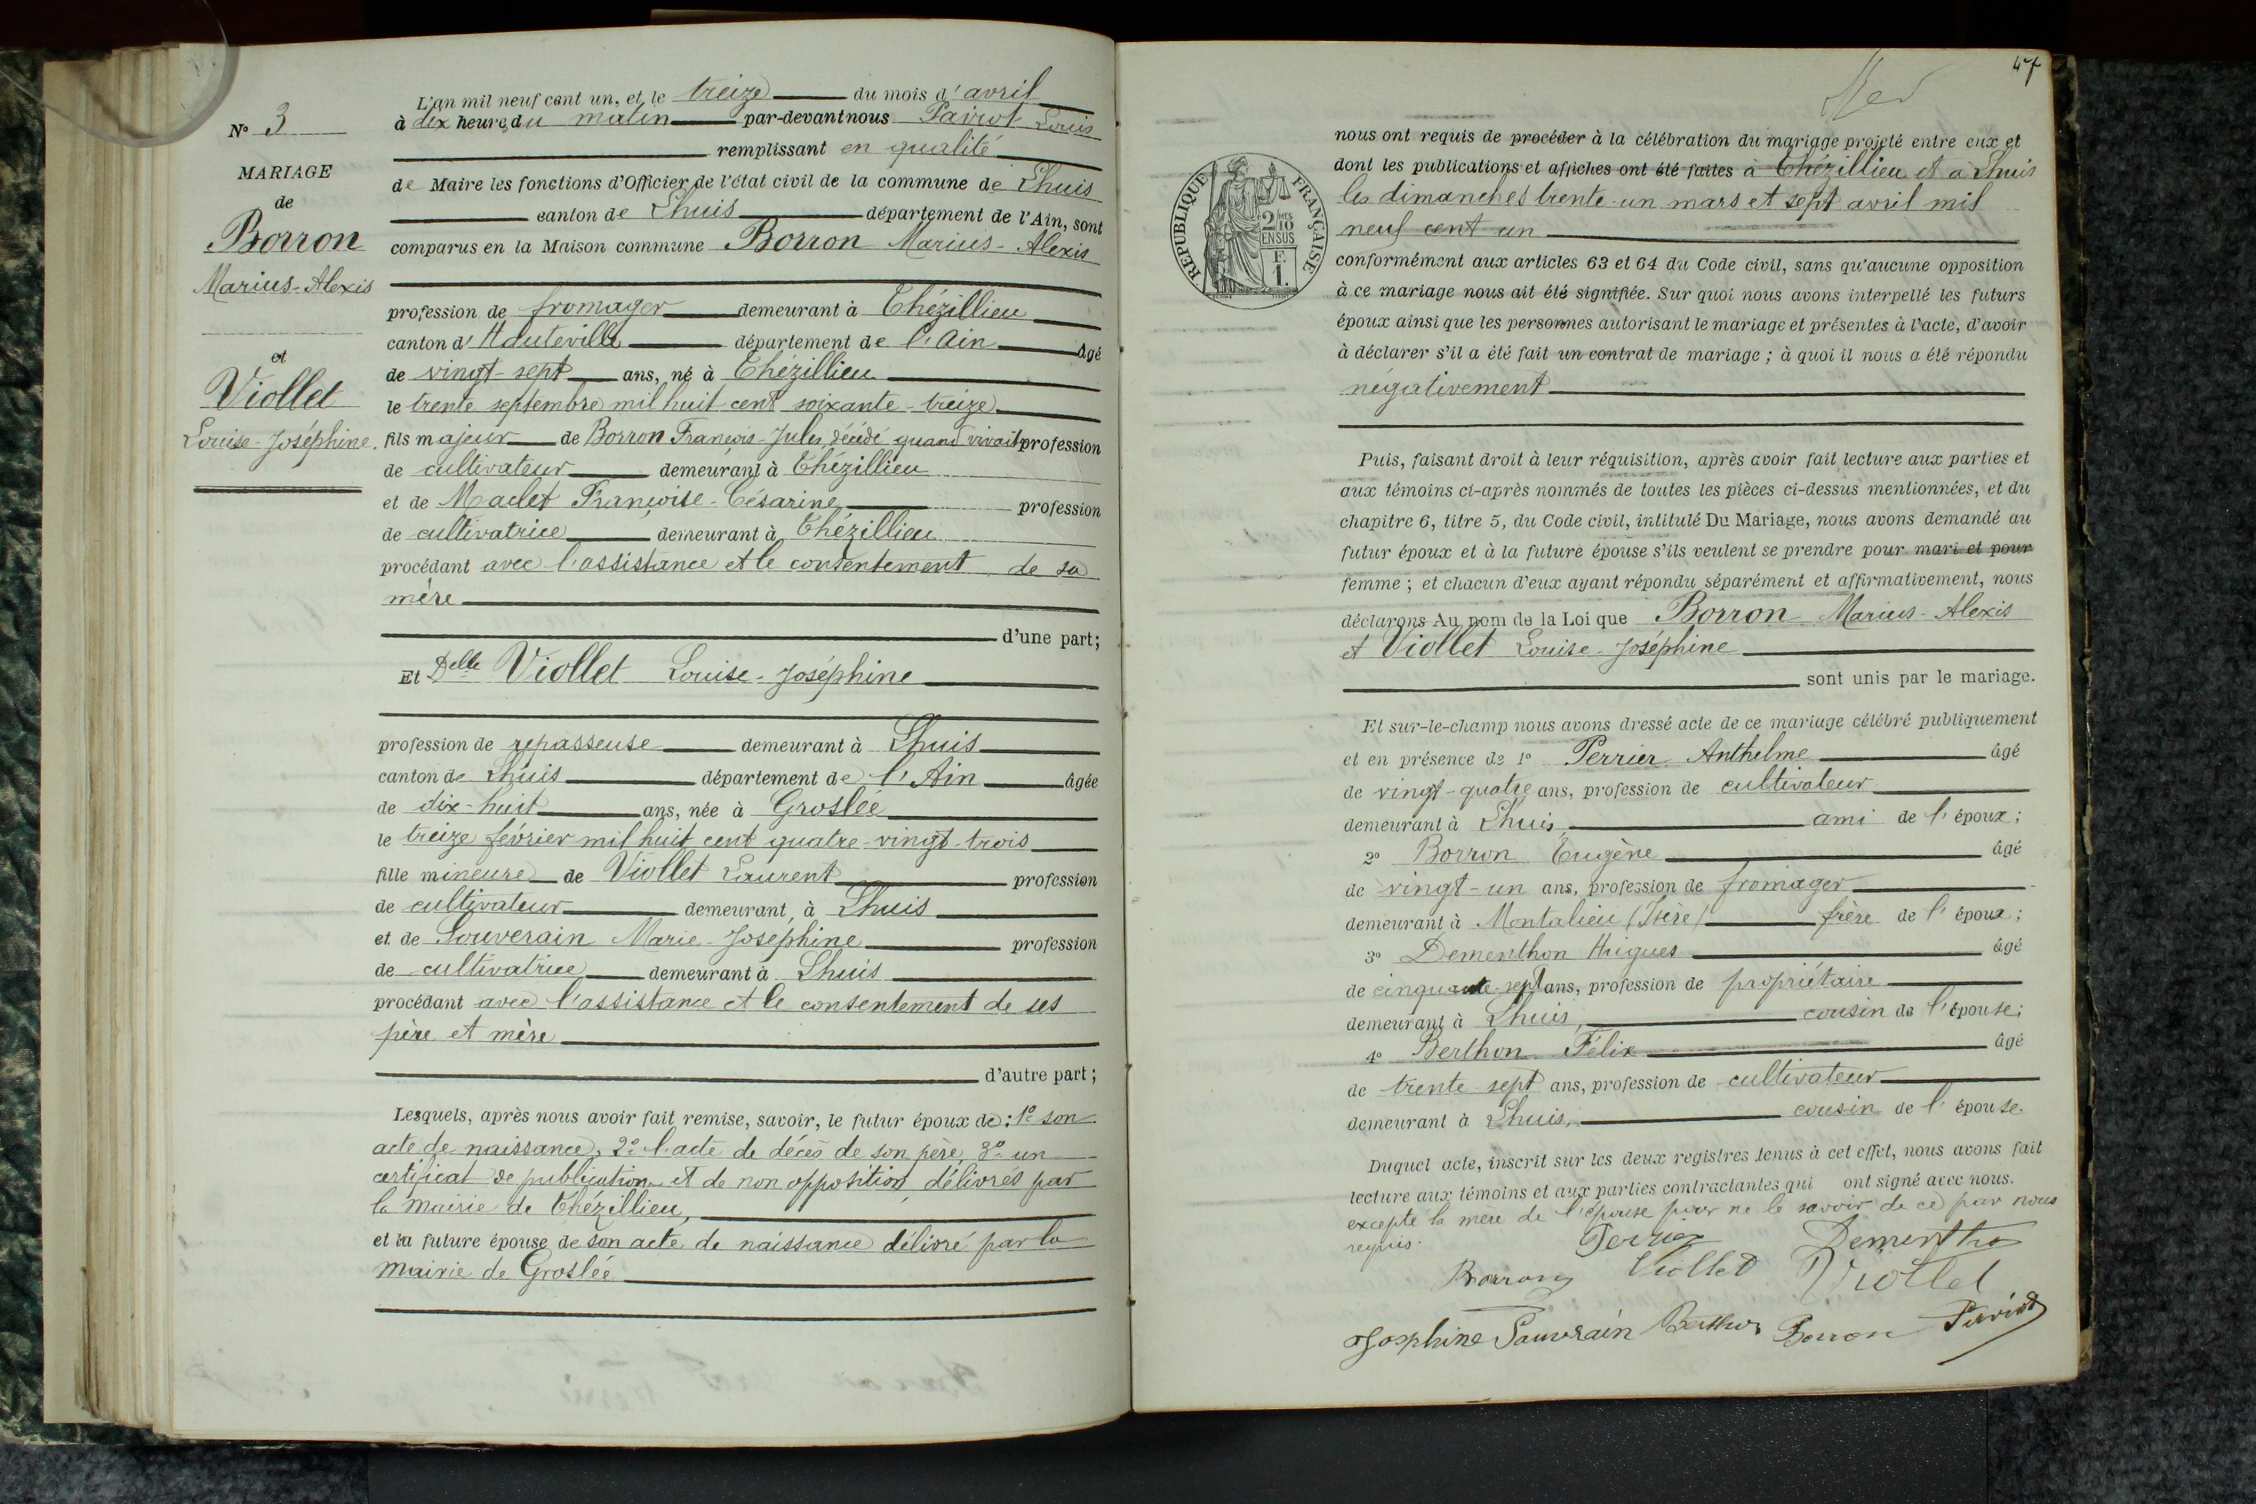 N° 3
MARIAGE
de
Borron
Marius-Alexis
et
Viollet
Louise-Joséphine.
L'an mil neuf cent un, et le treize du mois d'avril
à dix heures du matin par-devant nous Pavrot Louis
remplissant en qualité
de Maire les fonctions d'Officier de l'état civil de la commune de Lhuis
canton de Lhuis département de l'Ain, sont
comparus en la Maison commune Borron Marius-Alexis
profession de fromager demeurant à Thézillieu
canton d'Hauteville département de l'Ain âgé
de vingt-sept ans, né à Thézillieu
le trente septembre mil huit cent soixante-treize
fils majeur de Borron François-Jules, décédé quand vivait profession
de cultivateur demeurant à Thézillieu
et de Maclet Françoise-Césarine profession
de cultivatrice demeurant à Thézillieu
procédant avec l'assistance et le consentement de sa
mère
d'une part;
Et Delle Viollet Louise-Joséphine
profession de repasseuse demeurant à Lhuis
canton de Lhuis département de l'Ain âgée
de dix-huit ans, née à Groslée
le treize février mil huit cent quatre-vingt-trois
fille mineure de Viollet Laurent profession
de cultivateur demeurant à Lhuis
et de Souverain Marie-Joséphine profession
de cultivatrice demeurant à Lhuis
procédant avec l'assistance et le consentement de ses
père et mère
d'autre part;
Lesquels, après nous avoir fait remise, savoir, le futur époux de: 1° son
acte de naissance, 2° l'acte de décès de son père, 3° un
certificat de publication et de non opposition, délivrés par
la mairie de Thézillieu,
et la future épouse de son acte de naissance délivré par la
mairie de Groslée
47
nous ont requis de procéder à la célébration du mariage projeté entre eux et
dont les publications et affiches ont été faites à Thézillieu et à Lhuis
les dimanches trente-un mars et sept avril mil
neuf cent un
conformément aux articles 63 et 64 du Code civil, sans qu'aucune opposition
à ce mariage nous ait été signifiée. Sur quoi nous avons interpellé les futurs
époux ainsi que les personnes autorisant le mariage et présentes à l'acte, d'avoir
à déclarer s'il a été fait un contrat de mariage; à quoi il nous a été répondu
négativement
RÉPUBLIQUE FRANÇAISE
2/10
EN SUS
F.
1.
Puis, faisant droit à leur réquisition, après avoir fait lecture aux parties et
aux témoins ci-après nommés de toutes les pièces ci-dessus mentionnées, et du
chapitre 6, titre 5, du Code civil, intitulé Du Mariage, nous avons demandé au
futur époux et à la future épouse s'ils veulent se prendre pour mari et pour
femme; et chacun d'eux ayant répondu séparément et affirmativement, nous
déclarons Au nom de la Loi que Borron Marius-Alexis
et Viollet Louise-Joséphine
sont unis par le mariage.
Et sur-le-champ nous avons dressé acte de ce mariage célébré publiquement
et en présence de 1° Perrier Anthelme âgé
de vingt-quatre ans, profession de cultivateur
demeurant à Lhuis, ami de l'époux;
2° Borron Eugène âgé
de vingt-un ans, profession de fromager
demeurant à Montalieu (Isère) frère de l'époux;
3° Dementhon Hugues âgé
de cinquante-sept ans, profession de propriétaire
demeurant à Lhuis, cousin de l'épouse;
4° Berthon Félix âgé
de trente-sept ans, profession de cultivateur
demeurant à Lhuis, cousin de l'épouse.
Duquel acte, inscrit sur les deux registres tenus à cet effet, nous avons fait
lecture aux témoins et aux parties contractantes qui ont signé avec nous.
excepté la mère de l'épouse pour ne le savoir de ce par nous
requis.
Perrier Dementho
Borron Viollet Viollet
Josephine Sauvrain Berthon Borron